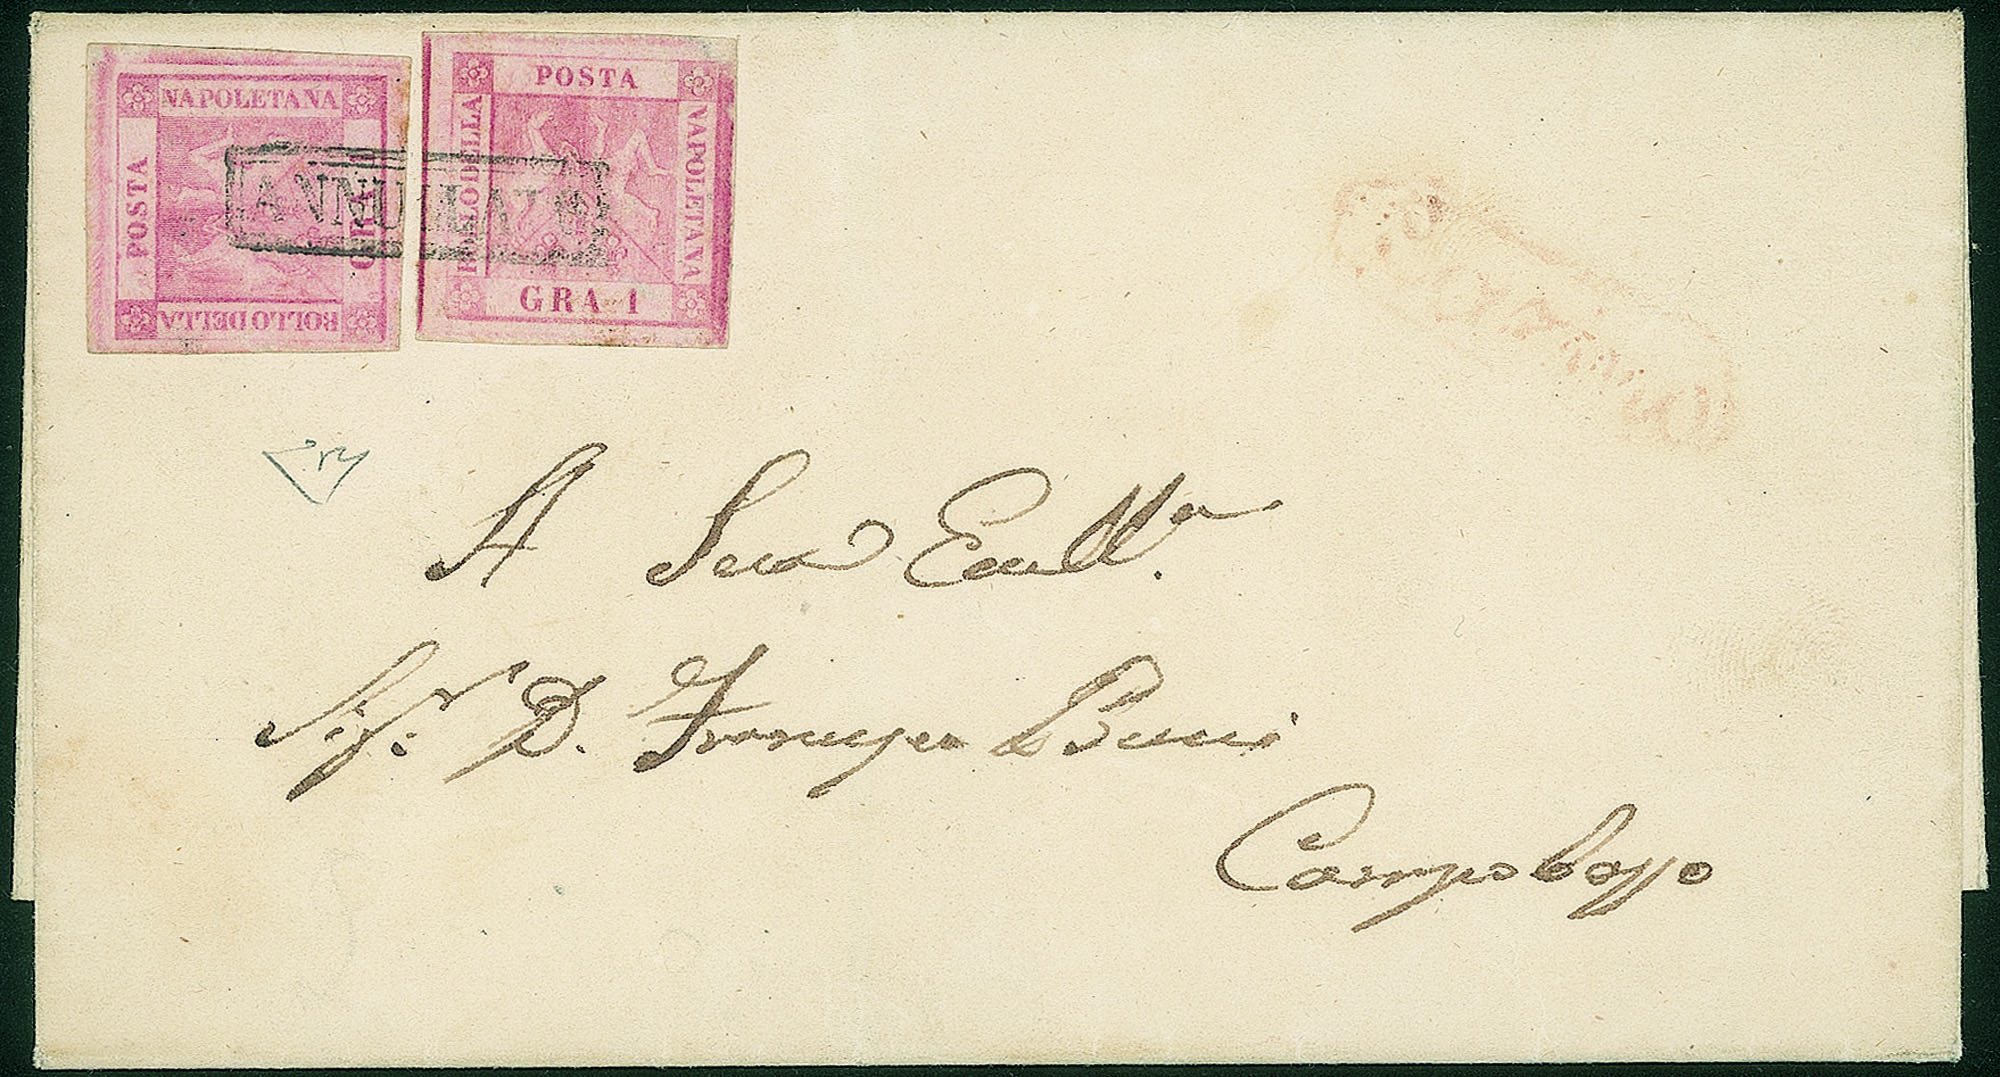 NAPOLETANA
POSTA
GRA
BOLLO DELLA
POSTA
BOLLO DELLA
NAPOLETANA
GRA 1
ANNULLATO
A Sua Eccell.a
Sig.r D. Francesco
Campobasso